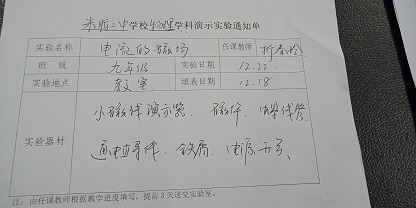 米脂二中学校物理学科演示实验通知单
实验名称 电流的磁场 任课教师
班 级 九年级 实验日期 12.22.
实验地点 教室 填表日期 12.18
小磁针演示器. 磁体.
实验器材
通电导体. 铁屑. 电源开关、
注:由任课教师根据教学进度填写,提前3天送交实验室。